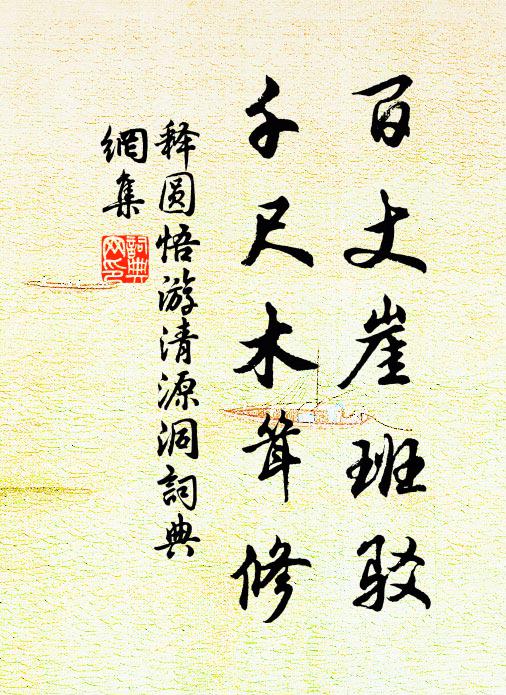 百丈崖班驳
千尺木耸修
释圆悟游清源洞詞典
網集
詞典網印